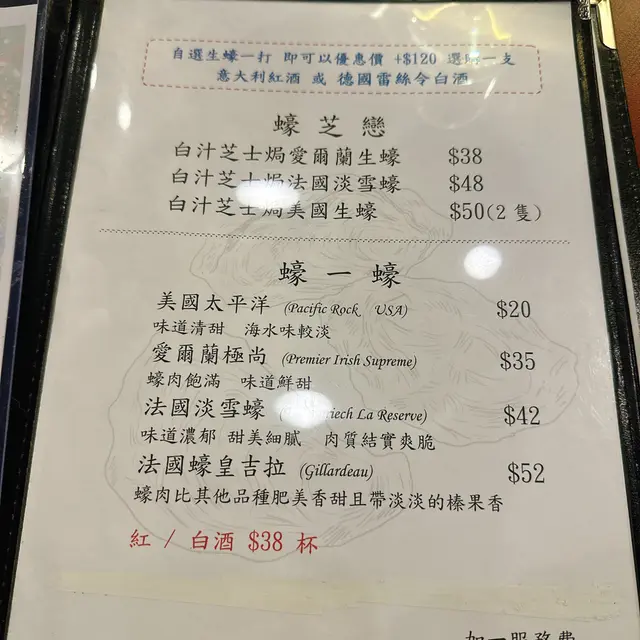 自選生蠔一打 即可以優惠價 +$120 選購一支
意大利紅酒 或 德國雷絲令白酒
蠔芝戀
白汁芝士焗愛爾蘭生蠔 $38
白汁芝士焗法國淡雪蠔 $48
白汁芝士焗美國生蠔 $50(2 隻)
蠔一蠔
美國太平洋 (Pacific Rock USA) $20
味道清甜 海水味較淡
愛爾蘭極尚 (Premier Irish Supreme) $35
蠔肉飽滿 味道鮮甜
法國淡雪蠔 La Reserve) $42
味道濃郁 甜美細膩 肉質結實爽脆
法國蠔皇吉拉 (Gillardeau) $52
蠔肉比其他品種肥美香甜且帶淡淡的榛果香
紅 / 白酒 $38 杯
加一服務費